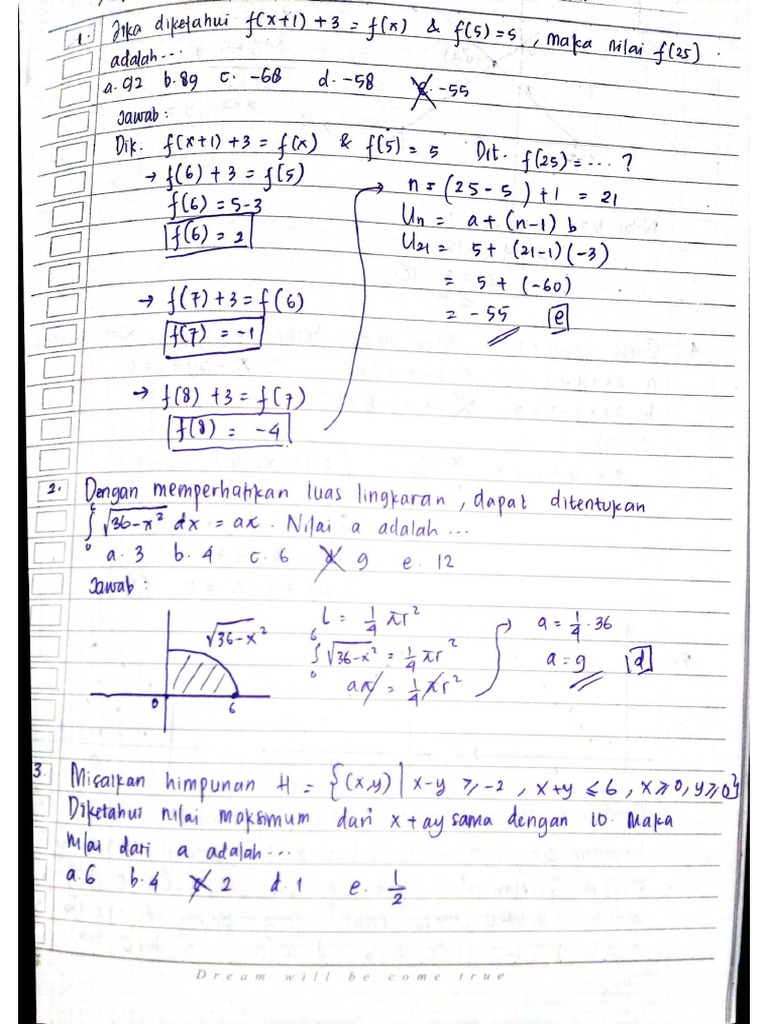 1. Jika diketahui f(x+1) + 3 = f(x) & f(5) = 5, maka nilai f(25)
adalah ...
a. 92 b. 89 c. -68 d. -58 e. -55
Jawab :
Dik. f(x+1) + 3 = f(x) & f(5) = 5 Dit. f(25) = ... ?
→ f(6) + 3 = f(5)
f(6) = 5-3
f(6) = 2
→ f(7) + 3 = f(6)
f(7) = -1
→ f(8) + 3 = f(7)
f(8) = -4
n = (25 - 5) + 1 = 21
Un = a + (n-1) b
U21 = 5 + (21-1)(-3)
= 5 + (-60)
= -55 e
2. Dengan memperhatikan luas lingkaran, dapat ditentukan
∫₀⁶ √36-x² dx = aπ. Nilai a adalah ...
a. 3 b. 4 c. 6 d. 9 e. 12
Jawab :
√36-x²
0 6
L = 1/4 πr²
∫₀⁶ √36-x² = 1/4 πr²
aπ = 1/4 πr²
a = 1/4 . 36
a = 9 d
3. Misalkan himpunan H = {(x,y) | x-y ≥ -2, x+y ≤ 6, x≥0, y≥0}
Diketahui nilai maksimum dari x + ay sama dengan 10. Maka
nilai dari a adalah ...
a. 6 b. 4 c. 2 d. 1 e. 1/2
Dream will be come true